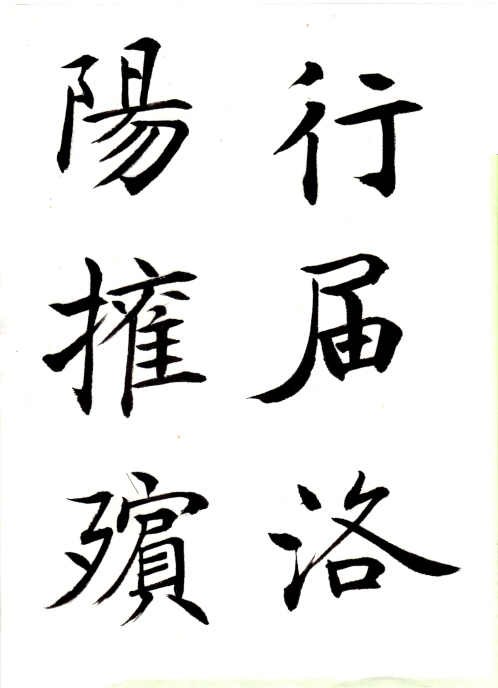 行届洛
陽擁殯